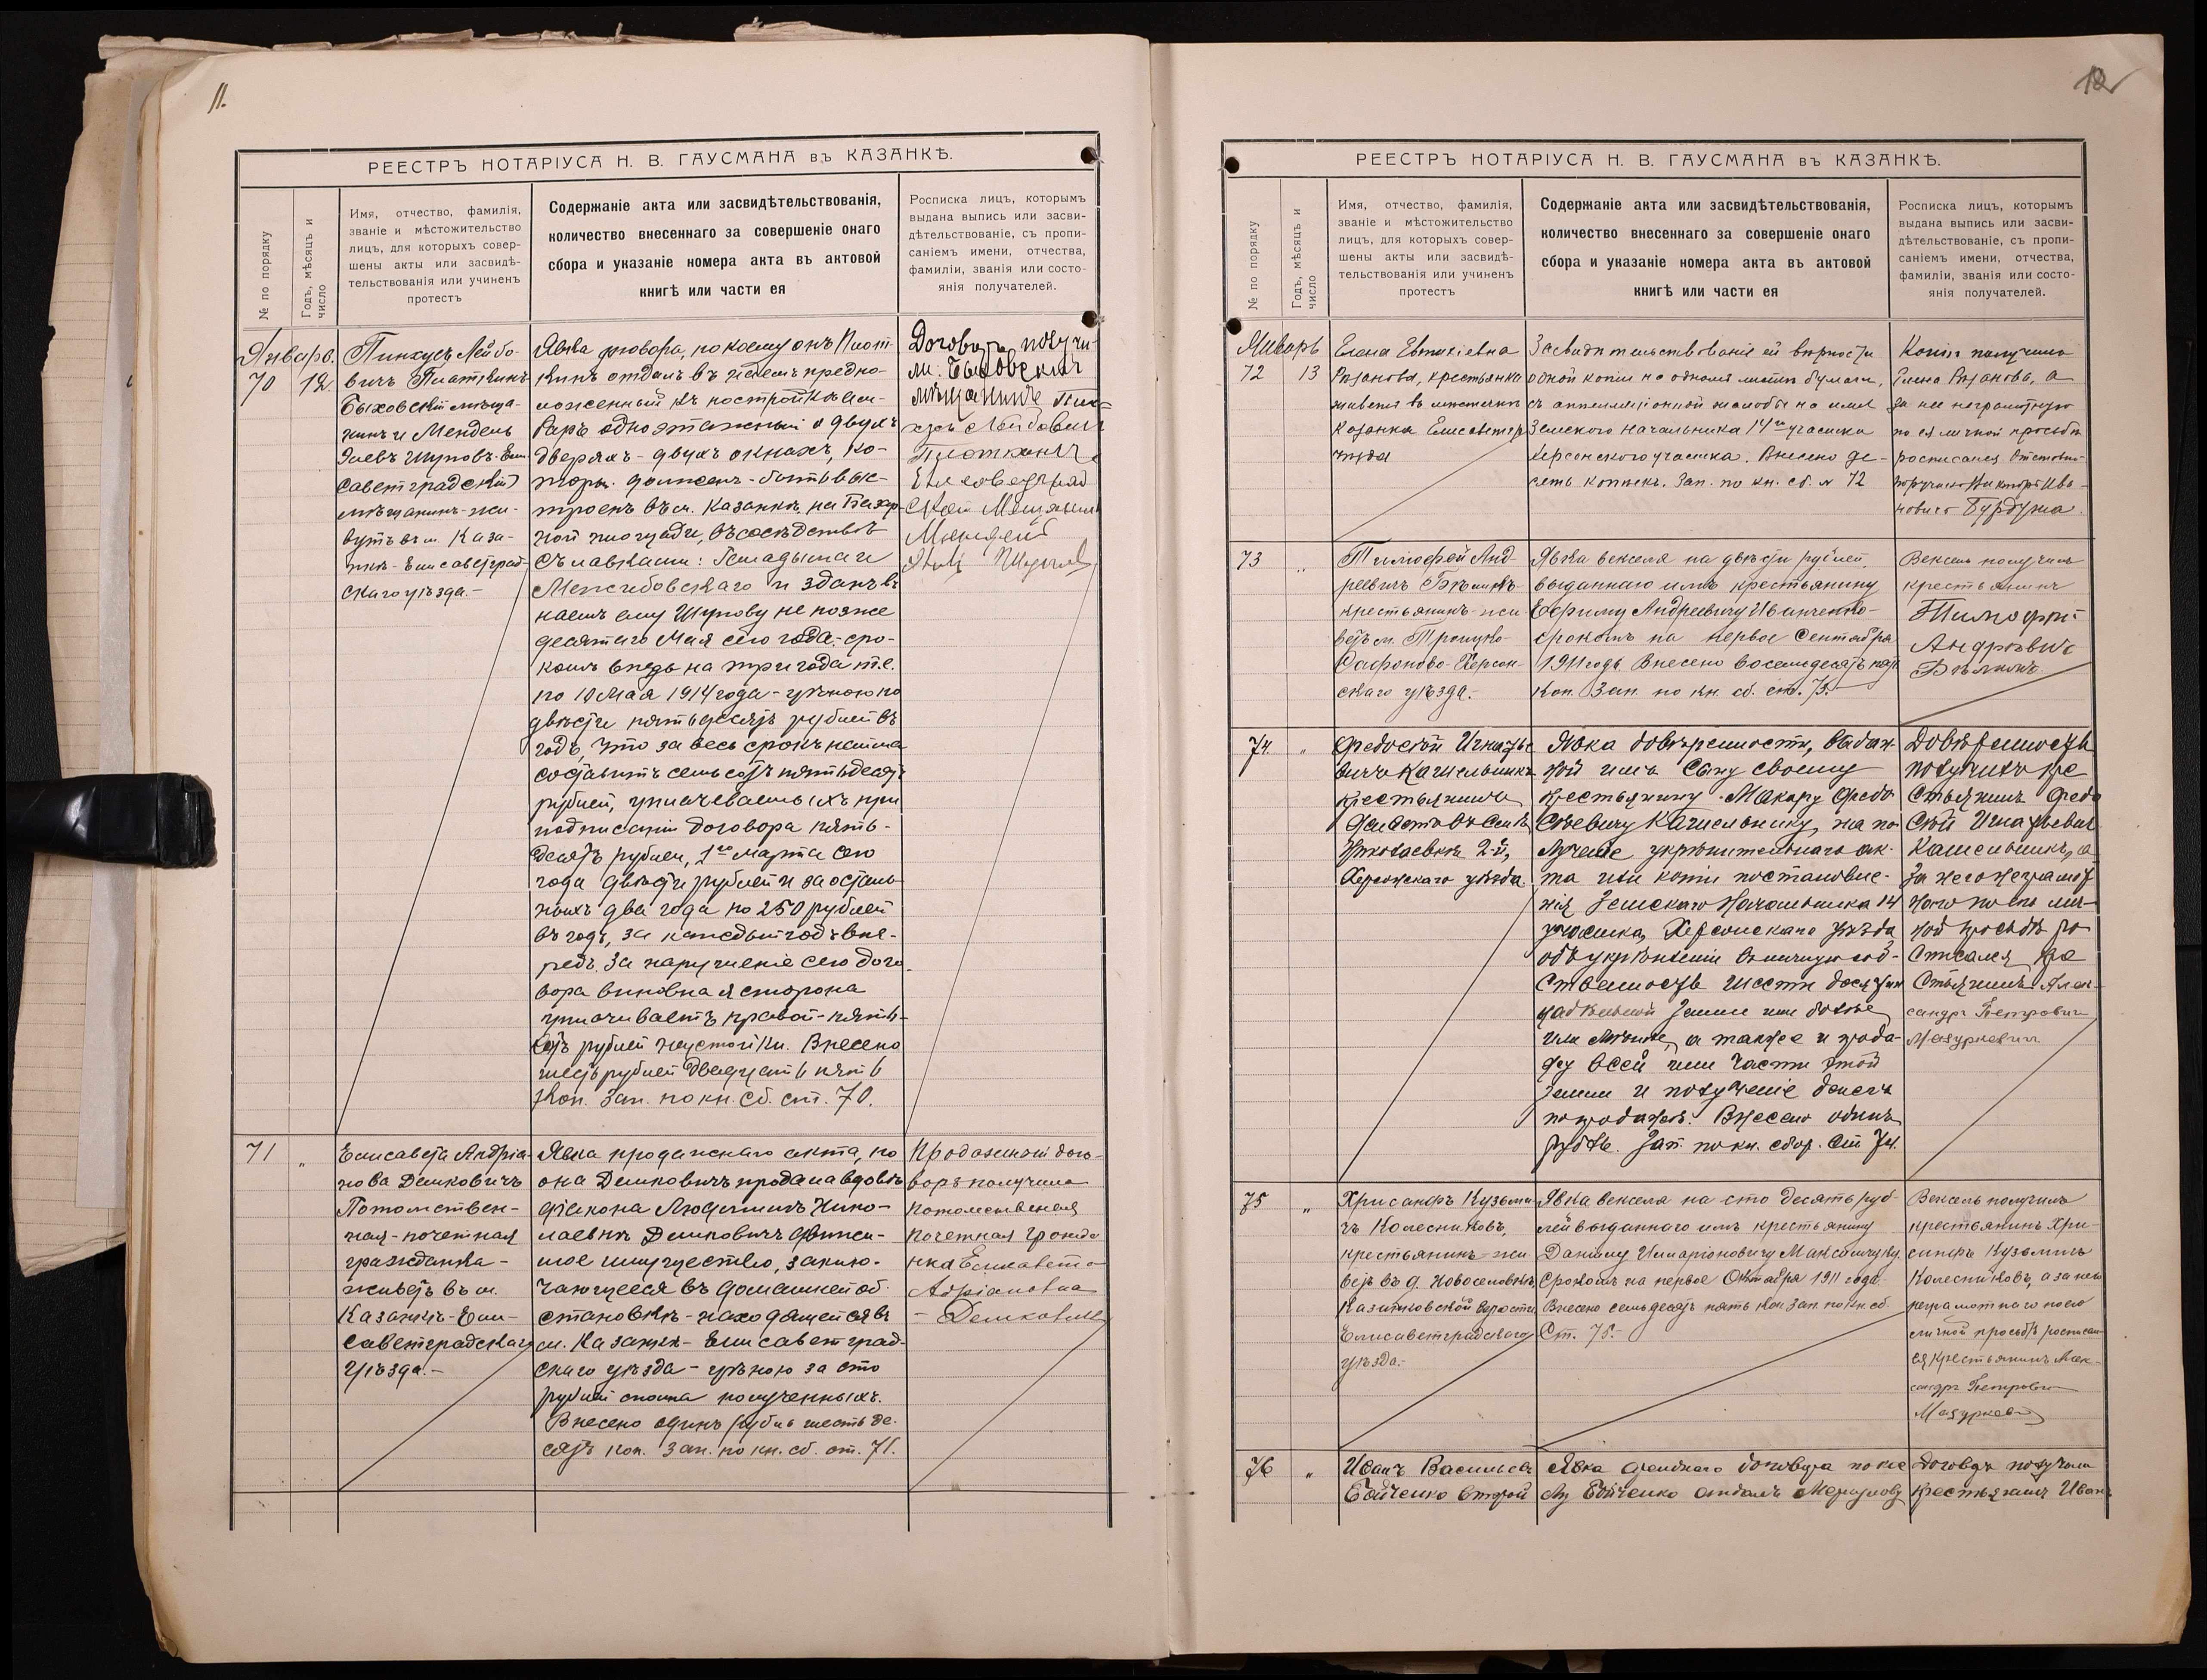 11.
РЕЕСТРЪ НОТАРІУСА Н. В. ГАУСМАНА въ КАЗАНКѢ.
№ по порядку
Годъ, мѣсяцъ и
число
Имя, отчество, фамилія,
званіе и мѣстожительство
лицъ, для которыхъ совер-
шены акты или засвидѣ-
тельствованія или учиненъ
протестъ
Содержаніе акта или засвидѣтельствованія,
количество внесеннаго за совершеніе онаго
сбора и указаніе номера акта въ актовой
книгѣ или части ея
Росписка лицъ, которымъ
выдана выпись или засви-
дѣтельствованіе, съ пропи-
саніемъ имени, отчества,
фамиліи, званія или состо-
янія получателей.
Январь.
70 12.
Пинхусъ Лейбо-
вичъ Плоткинъ
Быховскій мѣща-
нинъ и Мендель
Шуповъ-Ели-
саветградскій
мѣщанинъ-жи-
вутъ въ м. Каза-
нкѣ-Елисаветград-
скаго уѣзда.-
Явка договора, по коему онъ Плот-
кинъ отдалъ въ наемъ предпо-
ложенный къ постройкѣ ам-
баръ одноэтажный о двухъ
дверяхъ-двухъ окнахъ, ко-
торый долженъ-быть выс-
троенъ въ м. Казанкѣ на Базар-
ной площади, въ сосѣдствѣ
съ лавками:
Межибовскаго и зданъ въ
наемъ ему Шупову не позже
десятаго Мая сего года-сро-
комъ впредь на три года т.е.
по 10 Мая 1914 года-цѣною по
двѣсти пятьдесятъ рублей въ
годъ, что за весь срокъ найма
составитъ семьсотъ пятьдесятъ
рублей, уплачеваемыхъ при
подписаніи договора пять-
десятъ рублей, 1го марта сего
года двѣсти рублей и за осталь-
ныхъ два года по 250 рублей
въ годъ, за каждый годъ впе-
редъ. За нарушеніе сего дого-
вора виновная сторона
уплачиваетъ правой-пять-
сотъ рублей неустойки. Внесено
шесть рублей двадцать пять
коп. Зап. по кн. сб. ст. 70.
Договоръ получи-
ли: Быховскій
мѣщанинъ Пин-
хусъ Лейбовичъ
Плоткинъ
Елисоветград
ской Мещанинъ
Мендель
71 "
Елисавета Андріа-
нова Демковичъ
Потомствен-
ная-почетная
гражданка-
живетъ въ м.
Казанкѣ-Ели-
саветградскаго
уѣзда.-
Явка продажнаго акта, по
она Демковичъ продала вдовѣ
діакона Людмилѣ Нико-
лаевнѣ Демковичъ движи-
мое имущество, заклю-
чающееся въ домашней об-
становкѣ-находящейся въ
м. Казанкѣ-Елисаветград-
скаго уѣзда-цѣною за сто
рублей сполна полученныхъ.
Внесено одинъ рубль шестьде-
сятъ коп. Зап. по кн. сб. ст. 71.
Продажный дого-
воръ получила
потомственная
почетная гражда
нка Елисавета
Адріановна
- Демковичъ
12
РЕЕСТРЪ НОТАРІУСА Н. В. ГАУСМАНА въ КАЗАНКѢ.
№ по порядку
Годъ, мѣсяцъ и
число
Имя, отчество, фамилія,
званіе и мѣстожительство
лицъ, для которыхъ совер-
шены акты или засвидѣ-
тельствованія или учиненъ
протестъ
Содержаніе акта или засвидѣтельствованія,
количество внесеннаго за совершеніе онаго
сбора и указаніе номера акта въ актовой
книгѣ или части ея
Росписка лицъ, которымъ
выдана выпись или засви-
дѣтельствованіе, съ пропи-
саніемъ имени, отчества,
фамиліи, званія или состо-
янія получателей.
Январь
72 13
Елена Евтихіевна
Рязанова, крестьянка
живетъ въ мѣстечкѣ
Казанка Елисаветгр
уѣзда
Засвидѣтельствованіе ей вѣрности
одной копіи на одномъ листѣ бумаги,
съ аппелляціонной жалобы на имя
Земскаго Начальника 14го участка
Херсонского участка. Внесено де-
сять копѣекъ. Зап. по кн. сб. № 72
Копію получила
Елена Рязанова, а
за нее неграмотную
по ея личной просьбѣ
росписался Отставной
поручикъ Викторъ Ива-
новичъ Бурдужа.
73 "
Тимофей Анд-
реевичъ Бѣликъ-
крестьянинъ-жи
ветъ м. Троицко
Сафоново-Херсон-
скаго уѣзда.-
Явка векселя на двѣсти рублей,
выданнаго имъ крестьянину
Ефриму Андреевичу Иванченко-
срокомъ на первое Сентября
1911 года. Внесено восемьдесятъ пять
коп. Зап. по кн. сб. ст. 73.-
Вексель получилъ
крестьянинъ
Тимофей
Андреевичъ
Бѣликъ.
74. "
Федосій Игнатье
вичъ Кашельникъ
крестьянинъ
живетъ въ селѣ
Николаевкѣ 2-й,
Херсонскаго уѣзда
Явка довѣренности, выдан-
ной имъ сыну своему
крестьянину Макару Федо
сіевичу Кашельнику, на по-
лученіе укрѣпительнаго ак-
та или копіи постановле-
нія Земскаго Начальника 14
участка, Херсонскаго уѣзда,
объ укрѣпленіи въ личную соб-
ственность шести десятин
надѣльной земли или болѣе
или менѣе, а также и прода-
жу всей или части этой
земли и полученіе денегъ
по продажѣ. Внесено одинъ
рубль. Зап. по кн. сбор. ст. 74.
Довѣренность
получилъ кре
стьянинъ Федо
сій Игнатьевичъ
Кашельникъ, а
за него неграмот
наго по его лич-
ной просьбѣ ро
списался кре
стьянинъ Алек-
сандръ Петровичъ
Мазуркевичъ
75 "
Хрисанфъ Кузьми
чъ Колесниковъ,
крестьянинъ-жи
ветъ въ д. Новоселовкѣ
Казанковской волости
Елисаветградскаго
уѣзда.-
Явка векселя на сто десять руб-
лей выданнаго имъ крестьянину
Данилу Илларіоновичу Максимчуку.
Срокомъ на первое Октября 1911 года.
Внесено семьдесятъ пять коп. Зап. по кн. сб.
Ст. 75.-
Вексель получилъ
крестьянинъ Хри-
санфъ Кузьмичъ
Колесниковъ, а за него
неграмотнаго по его
личной просьбѣ росписал-
ся крестьянинъ Алек-
сандръ Петрович
Мазуркевичъ
76 "
Иванъ Васильевъ
Бойченко второй
Явка аренднаго договора по кое
му Бойченко отдалъ
Договоръ получили
крестьянинъ Иванъ